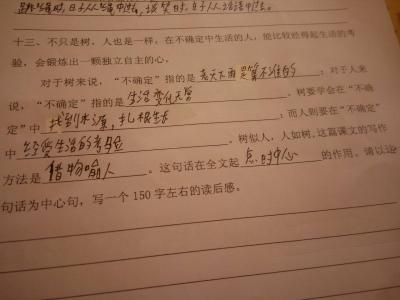 十三、不只是树，人也是一样，在不确定中生活的人，能比较经得起生活的考
验，会锻炼出一颗独立自主的心。
对于树来说，“不确定”指的是老天下雨是算不准的；对于人来
说，“不确定”指的是生活变化无穷。树要学会在“不确
定”中找到水源，扎根生长；而人则要在“不确定”
中经受生活的考验。树似人，人如树，这篇课文的写作
方法是借物喻人。这句话在全文起点明中心的作用。请以这
句话为中心句，写一个150字左右的读后感。